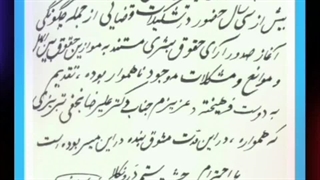 بیش از سی سال حضور در تشکیلات قضایی از جمله چگونگی
آغاز صدور آرای حقوق بشری مستند به موازین حقوق بین الملل
و موانع و مشکلات موجود ناهموار بوده، تقدیم
به دوست فرهیخته و عزیزم جناب دکتر علیرضا نجفی تبریزی
که همواره، در این مدت مشوق بنده در این مسیر بوده است
با احترام